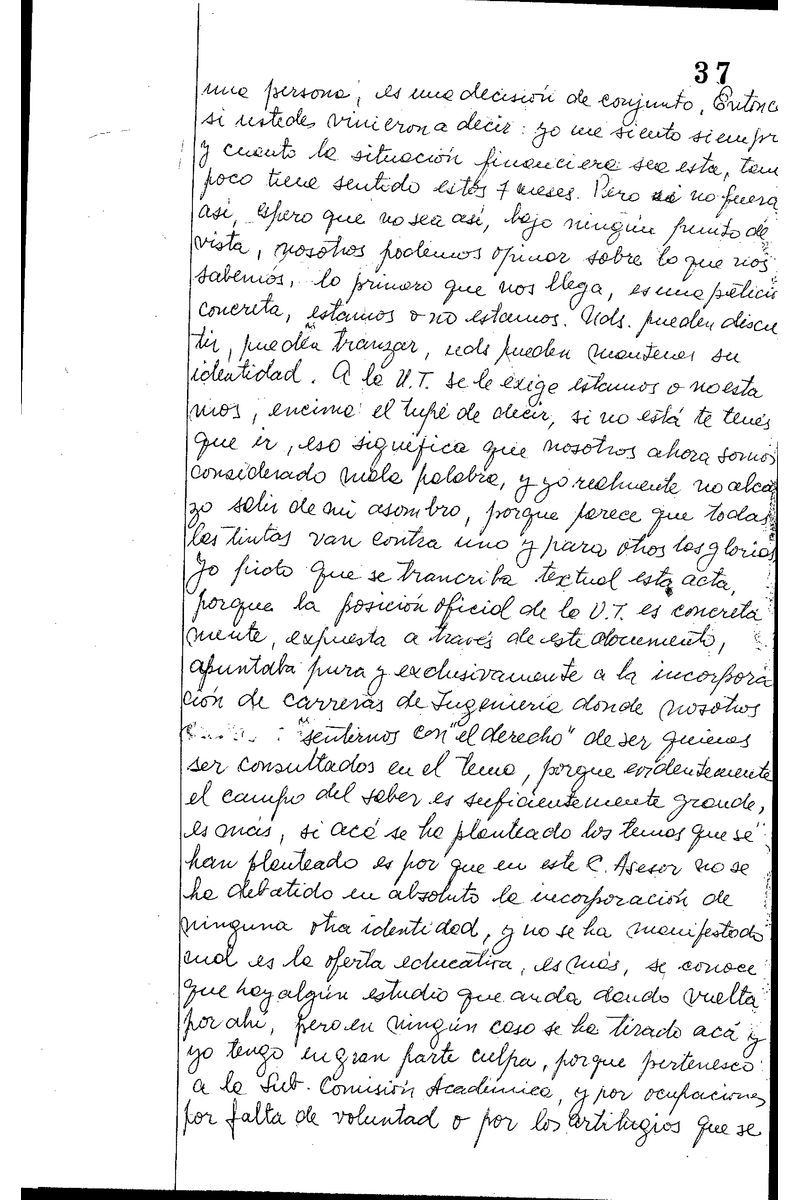 37
una persona, es una decisión de conjunto. Entonc
si ustedes vinieron a decir: yo me siento siempr
y cuanto la situación financiera sea esta, tam
poco tiene sentido estos 7 meses. Pero si no fuera
así, espero que no sea así, bajo ningún punto de
vista, nosotros podemos opinar sobre lo que nos
sabemos, lo primero que nos llega, es una petició
concreta, estamos o no estamos. Uds. pueden discu
tir, pueden tranzar, uds pueden mantener su
identidad. A la U.T. se le exige estamos o no esta
mos, encima el tupé de decir, si no está te tenés
que ir, eso significa que nosotros ahora somos
considerado mala palabra, y yo realmente no alca
zo salir de mi asombro, porque parece que todas
las tintas van contra uno y para otros las glorias
Yo pido que se trancriba textual esta acta,
porque la posición oficial de la U.T. es concreta
mente, expuesta a través de este documento,
apuntaba pura y exclusivamente a la incorpora
ción de carreras de Ingeniería donde nosotros
sentirnos con "el derecho" de ser quienes
ser consultados en el tema, porque evidentemente
el campo del saber es suficientemente grande,
es más, si acá se ha planteado los temas que se
han planteado es por que en este C. Asesor no se
ha debatido en absoluto la incorporación de
ninguna otra identidad, y no se ha manifestado
cual es la oferta educativa, es más, se conoce
que hay algún estudio que anda dando vuelta
por ahí, pero en ningún caso se ha tirado acá y
yo tengo en gran parte culpa, porque pertenesco
a la Sub. Comisión Académica, y por ocupaciones
por falta de voluntad o por los artilugios que se